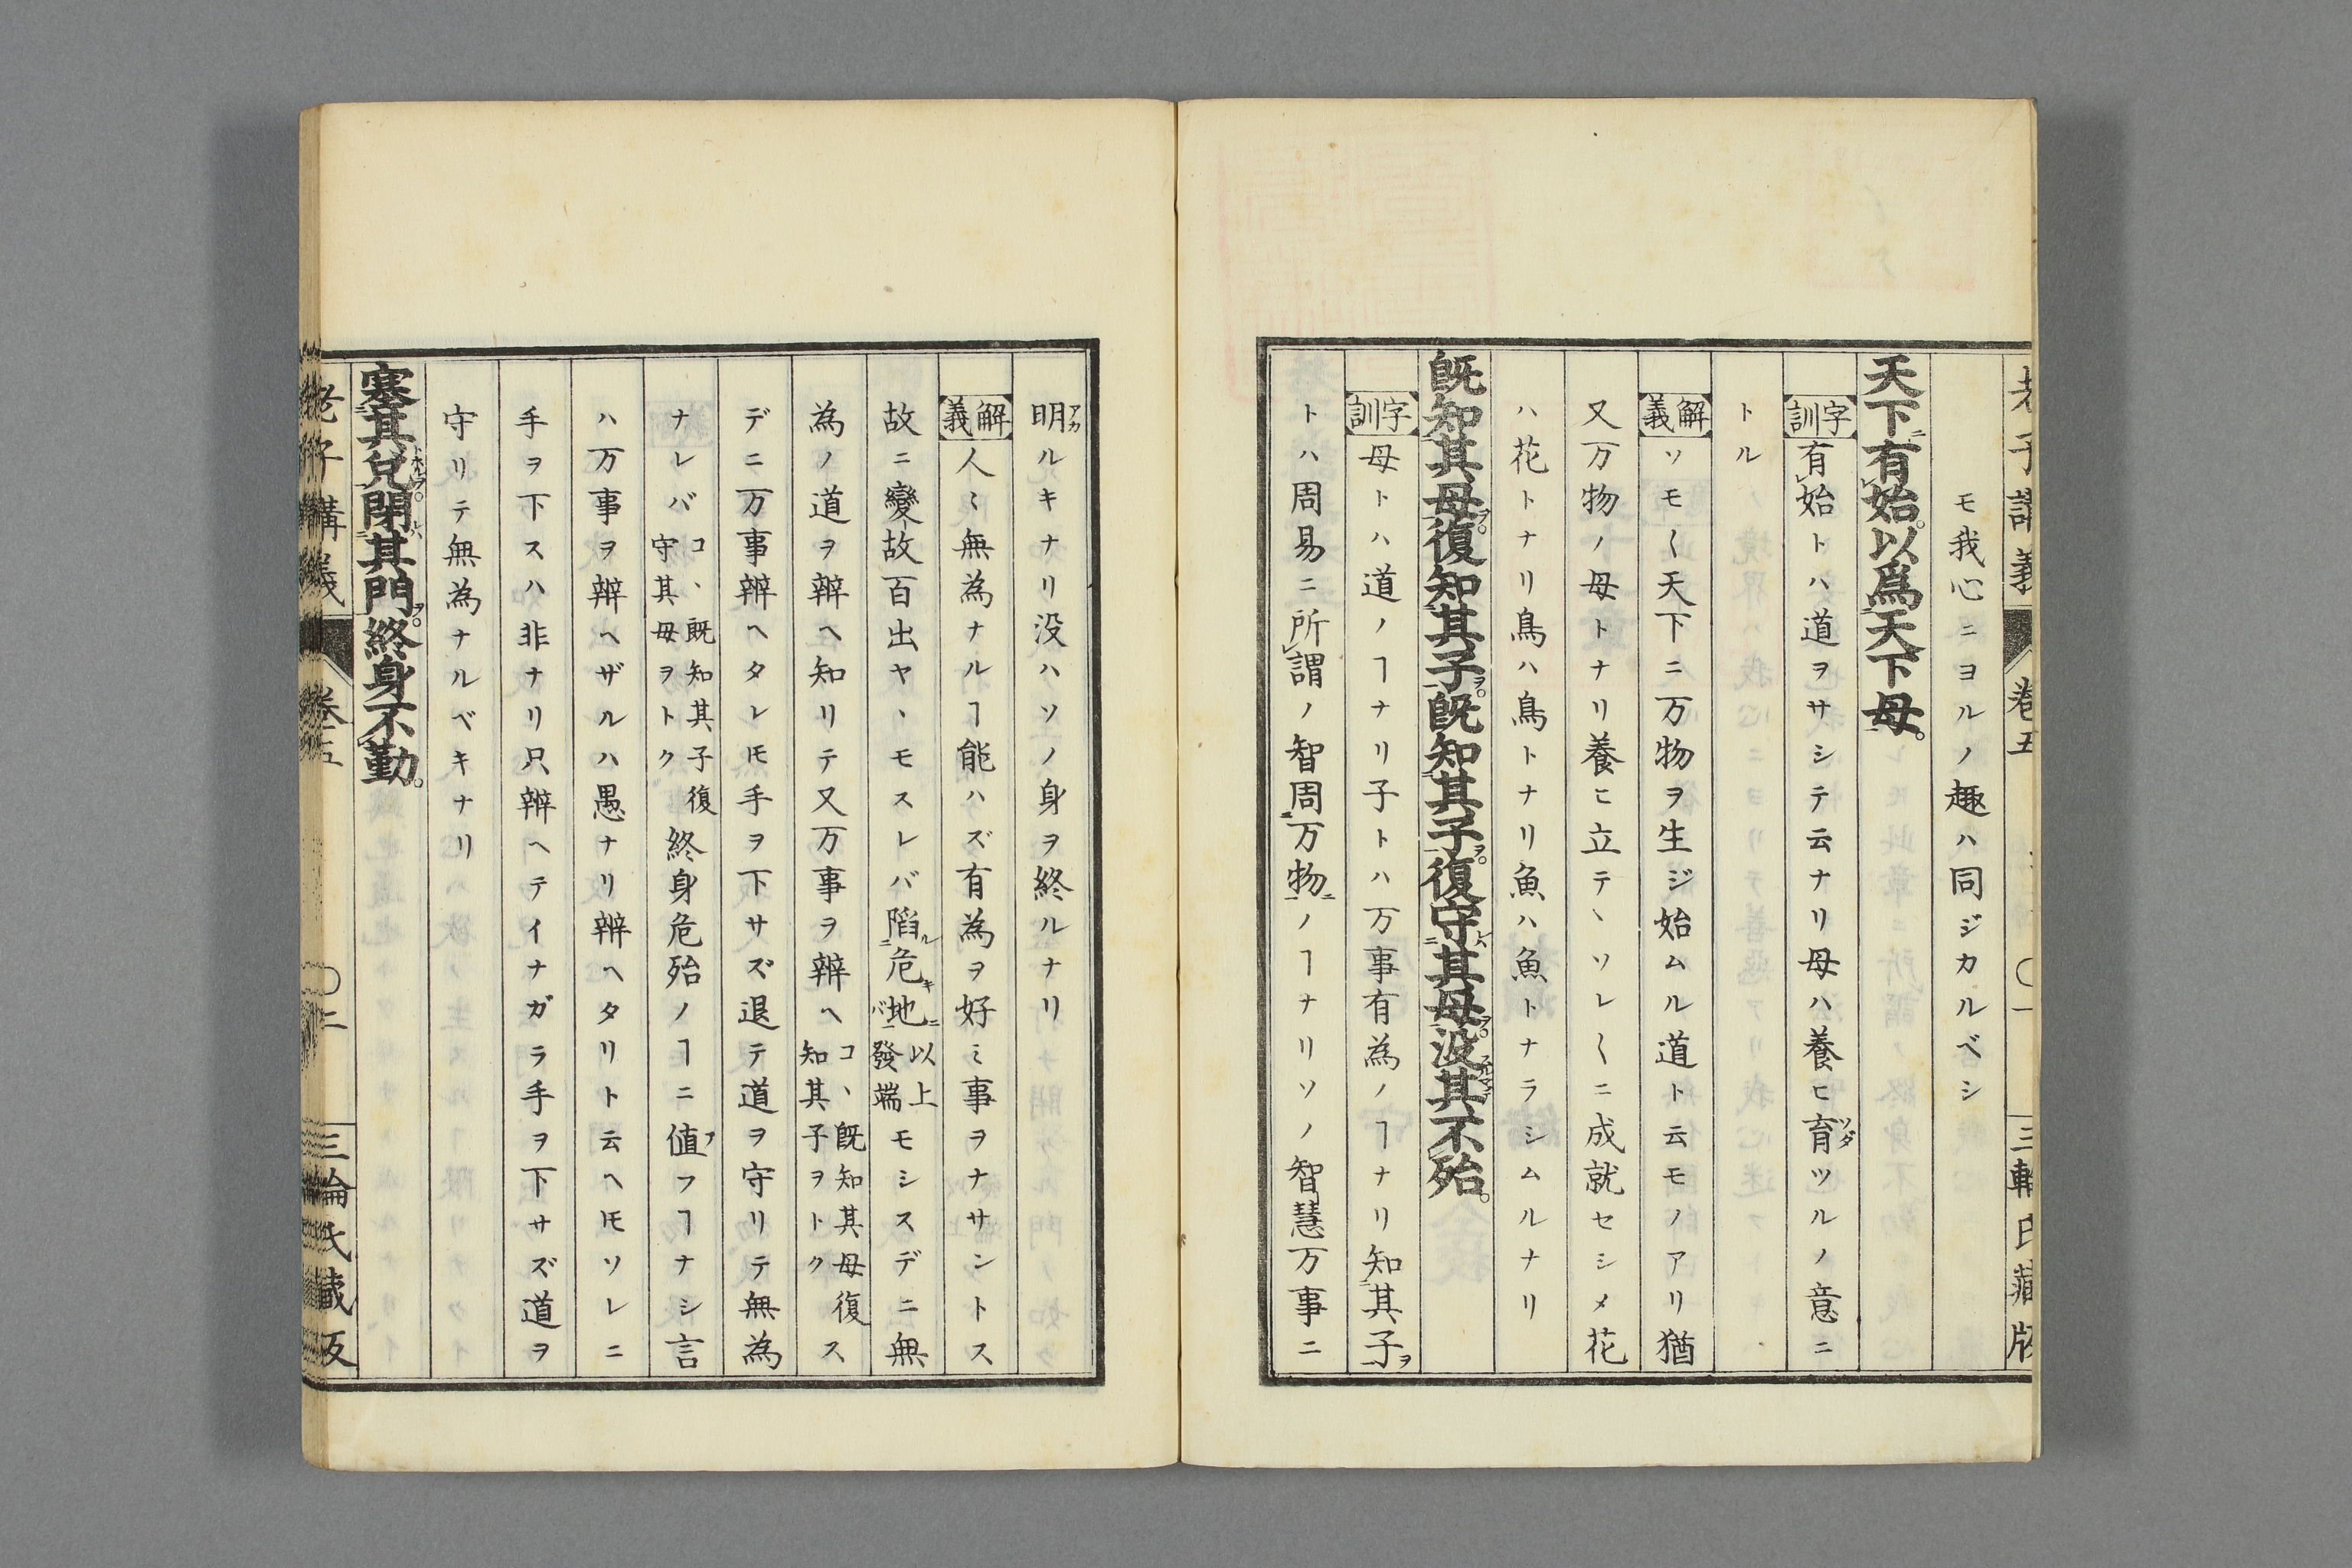 老子講義 卷五 〇一 三輪氏藏版
モ我心ニヨルノ趣ハ同ジカルベシ
天下有始。以爲天下母。
字訓 有始トハ道ヲサシテ云ナリ母ハ養ヒ育ツルノ意ニ
トル
解義 ソモ〱天下ニ万物ヲ生ジ始ムル道ト云モノアリ猶
又万物ノ母トナリ養ヒ立テヽソレ〱ニ成就セシメ花
ハ花トナリ鳥ハ鳥トナリ魚ハ魚トナラシムルナリ
旣知其母。復知其子。旣知其子。復守其母。没其不殆。
字訓 母トハ道ノヿナリ子トハ万事有為ノヿナリ知其子ヲ
トハ周易ニ所謂ノ智周万物ニノヿナリソノ智慧万事ニ
明ルキナリ没ハソノ身ヲ終ルナリ
解義 人〻無為ナルヿ能ハズ有為ヲ好ミ事ヲナサントス
故ニ變故百出ヤヽモスレバ陷ル危キ地ニ 以上發端 モシスデニ無
為ノ道ヲ辨ヘ知リテ又万事ヲ辨ヘ コヽ既知其母復知其子ヲトク ス
デニ万事辨ヘタレ𪜈手ヲ下サズ退テ道ヲ守リテ無為
ナレバ コヽ既知其子復守其母ヲトク 終身危殆ノヿニ値フヿナシ言
ハ万事ヲ辨ヘザルハ愚ナリ辨ヘタリト云ヘ𪜈ソレニ
手ヲ下スハ非ナリ只辨ヘテイナガラ手ヲ下サズ道ヲ
守リテ無為ナルベキナリ
塞其兌。閉其門。終身不勤。
老子講義 卷五 〇二 三輪氏藏版